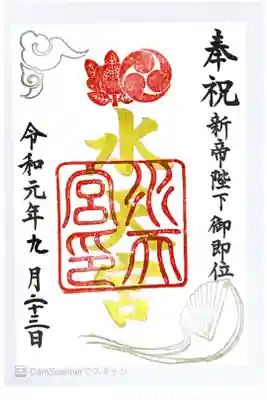 奉祝
新帝陛下御即位
水天宮
水天
宮印
令和元年九月二十三日
CamScannerでスキャン